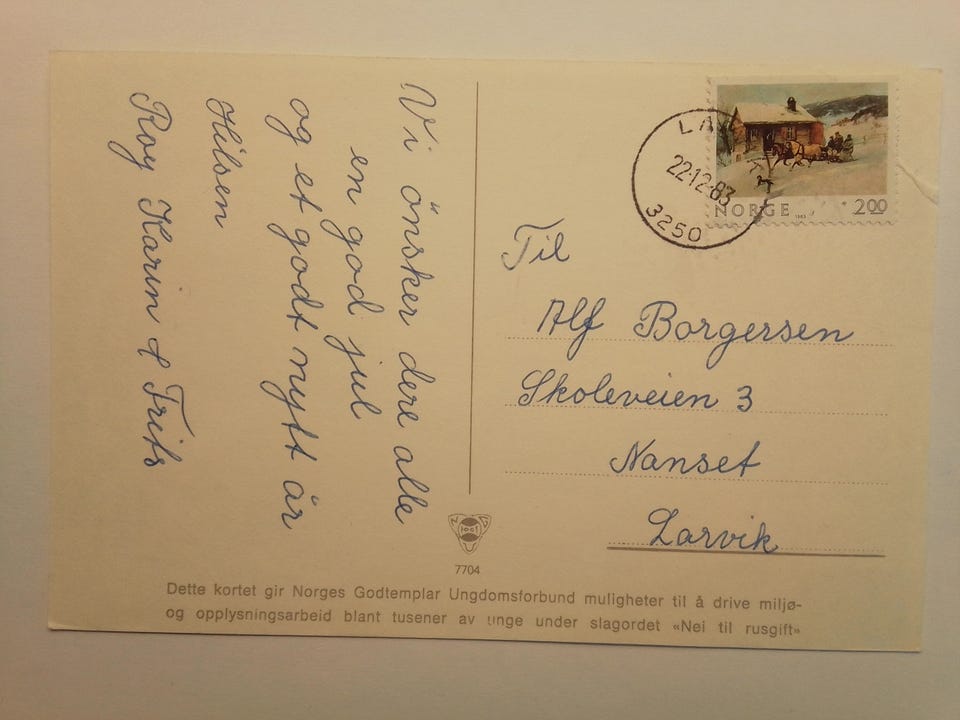 Vi önsker dere alle
en god jul
og et godt nytt år
Hilsen
Roy Karin & Frits
LA
22-12-83
3250
NORGE 2.00
Til
Alf Borgersen
Skoleveien 3
Nanset
Larvik
7704
Dette kortet gir Norges Godtemplar Ungdomsforbund muligheter til å drive miljø-
og opplysningsarbeid blant tusener av unge under slagordet «Nei til rusgift»